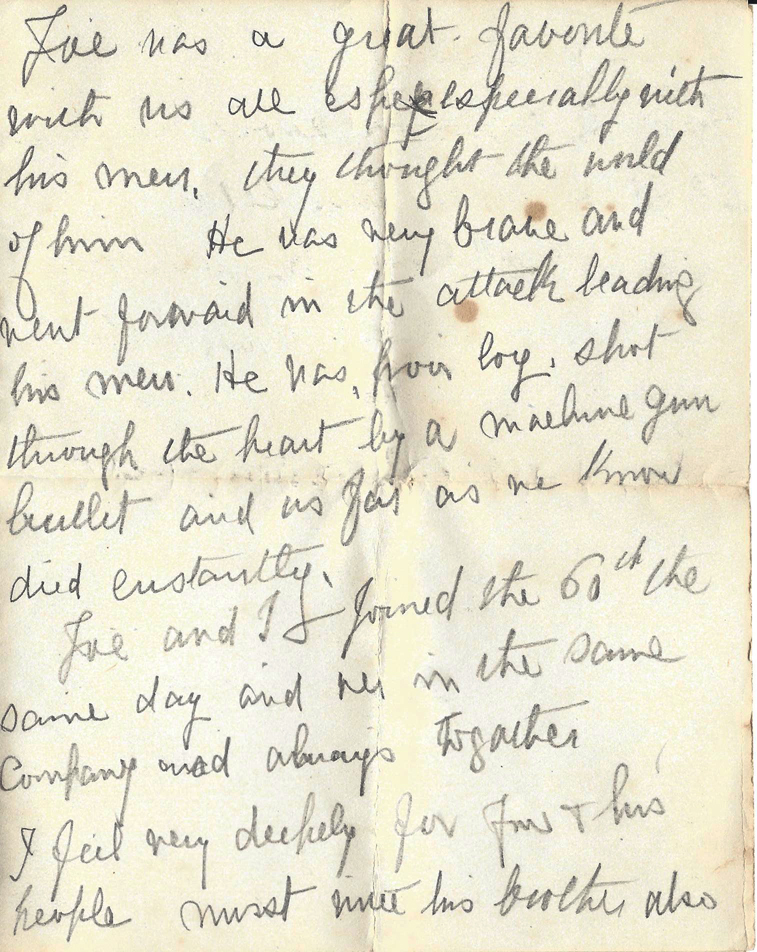 Joe was a great favorite
with us all espe especially with
his men, they thought the world
of him He was very brave and
went forward in the attack leading
his men. He was, poor boy, shot
through the heart by a machine gun
bullet and as far as we know
died enstantly.
Joe and I joined the 60th the
same day and were in the same
Company and always together
I feel very deeply for you & his
people must write his brother also